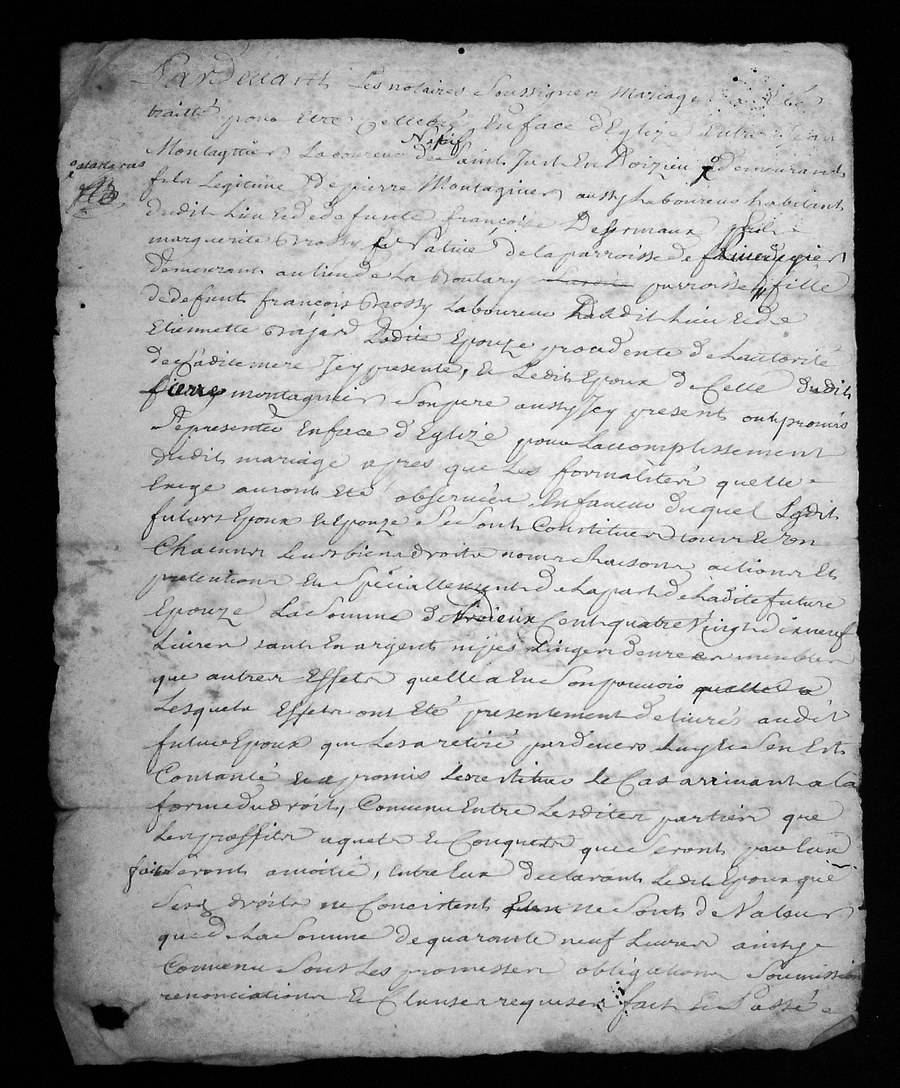 Pardevant Les notaires Soussignes Mariage a Eté
traitté pour Etre Cellebré En face d'Eglize Entre Jean
Montagnier Laboureur Natif de Saint Just En Doizieu demeurant
fils Legitime de pierre Montagnier aussy Laboureur habitant
dudit Lieu Et de defunte françoise Desormaux
marguerite Brossy Native de la parroisse de
demeurant au lieu de La parroisse fille
de defunt françois Brossy Laboureur dudit Lieu Et de
Etiennette Bajard Ladite Epouze procedente de Lautorité
de Saditemere Jcy presente, Et Ledit Epoux de Celle dudit
Pierre montagnier Son pere aussy Jcy present ont promis
Se presenter En face d'Eglize pour Laccomplissement
dudit mariage apres que Les formalités quelle
Exege auront Eté observées En faveur duquel Lesdits
futurs Epoux Et Epouze Se Sont Constitués tous Et Un
Chacuns Leurs biens droits noms Raisons actions Et
pretentions Et Spéciallement de La part de Ladite future
Epouze La Somme de deux Cent quatre Vingt dix neuf
Livres tant En argent nipes Linges denrées meubles
que autres Effets quelle a En Son pouvoir quelle a
Lesquels Effets ont Eté presentement delivrés audit
futur Epoux qui Les a retiré pardevers Luy Et Sen Est
Contanté Et a promis Les restituer le Cas arrivant a la
forme du droit, Convenu Entre Lesdites parties que
Les proffits aquets Et Conquets qui Seront par Eux
faits Seront amoitié, Entre Eux declarant Ledit Epoux que
Ses droits ne Concistent Et ne Sont de Valeur
que de La Somme de quarante neuf Livres ainsy
Convenu Sous Les promesses obligations Soumissions
renonciations Et Clauses requises fait Et Passé